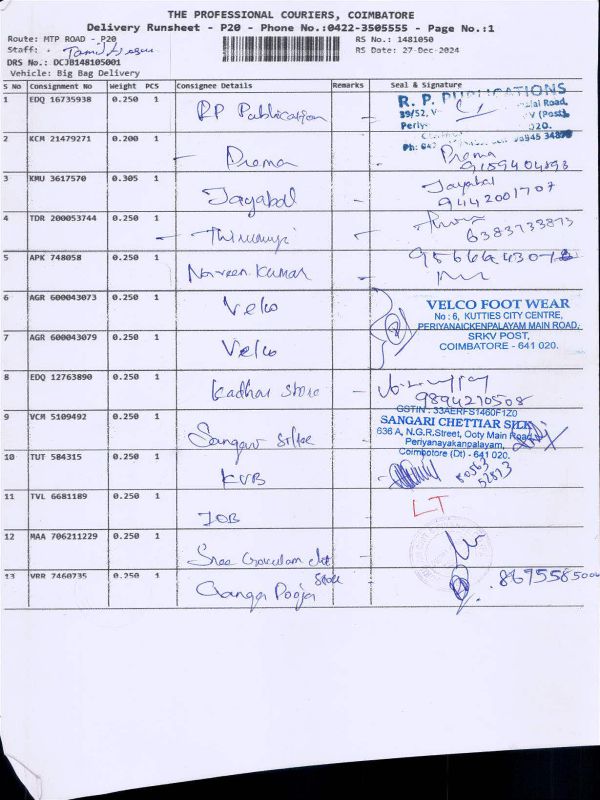 THE PROFESSIONAL COURIERS, COIMBATORE
Delivery Runsheet - P20 - Phone No.:0422-3505555 - Page No.:1
Route: MTP ROAD - P20
RS No.: 1481050
Staff:
RS Date: 27-Dec-2024
DRS No.: DCJB148105001
Vehicle: Big Bag Delivery
S No Consignment No Weight PCS Consignee Details Remarks Seal & Signature
1 EDQ 16735938 0.250 1 RP Publication
R. P. PUBLICATIONS
39/52,
Road,
(Post),
Periy
020.
2 KCM 21479271 0.200 1 Prema
Prema
9159404893
3 KMU 3617570 0.305 1 Jayabal
Jayabal
9442001707
4 TDR 200053744 0.250 1
6383733873
5 APK 748058 0.250 1 Naveen Kumar
6 AGR 600043073 0.250 1 Velco
VELCO FOOT WEAR
No : 6, KUTTIES CITY CENTRE,
PERIYANAICKENPALAYAM MAIN ROAD,
SRKV POST,
COIMBATORE - 641 020.
7 AGR 600043079 0.250 1 Velco
8 EDQ 12763890 0.250 1 Kadhar Store
9894270508
9 VCM 5109492 0.250 1
GSTIN : 33AERFS1460F1Z0
SANGARI CHETTIAR SILK
636 A, N.G.R.Street, Ooty Main Road,
Periyanayakanpalayam,
Coimbatore (Dt) - 641 020.
10 TUT 584315 0.250 1 KVB
80563
52873
11 TVL 6681189 0.250 1 IOB
LT
12 MAA 706211229 0.250 1 Sree Gokulam
13 VRR 7460735 0.250 1 Ganga Pooja Store